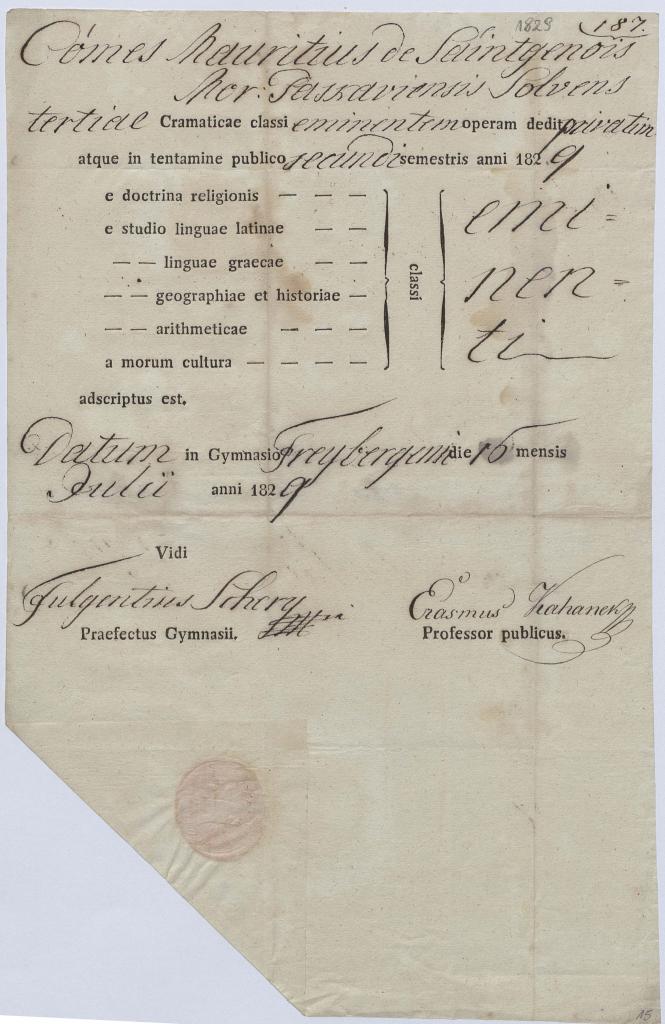 1829 187.
Cómes Mauritius de Saintgenois
Mor: Paskaviensis Solvens
tertiae Cramaticae classi eminentem operam dedit privatim
atque in tentamine publico secundi semestris anni 1829
e doctrina religionis — — —
e studio linguae latinae — —
— — linguae graecae — —
— — geographiae et historiae —
— — arithmeticae — — —
a morum cultura — — — —
classi
emi=
nen=
ti
adscriptus est.
Datum in Gymnasio Freybergensi die 16 mensis
Julii anni 1829
Vidi
Fulgentius Schory
Praefectus Gymnasii.
Erasmus Kahanek
Professor publicus.
15